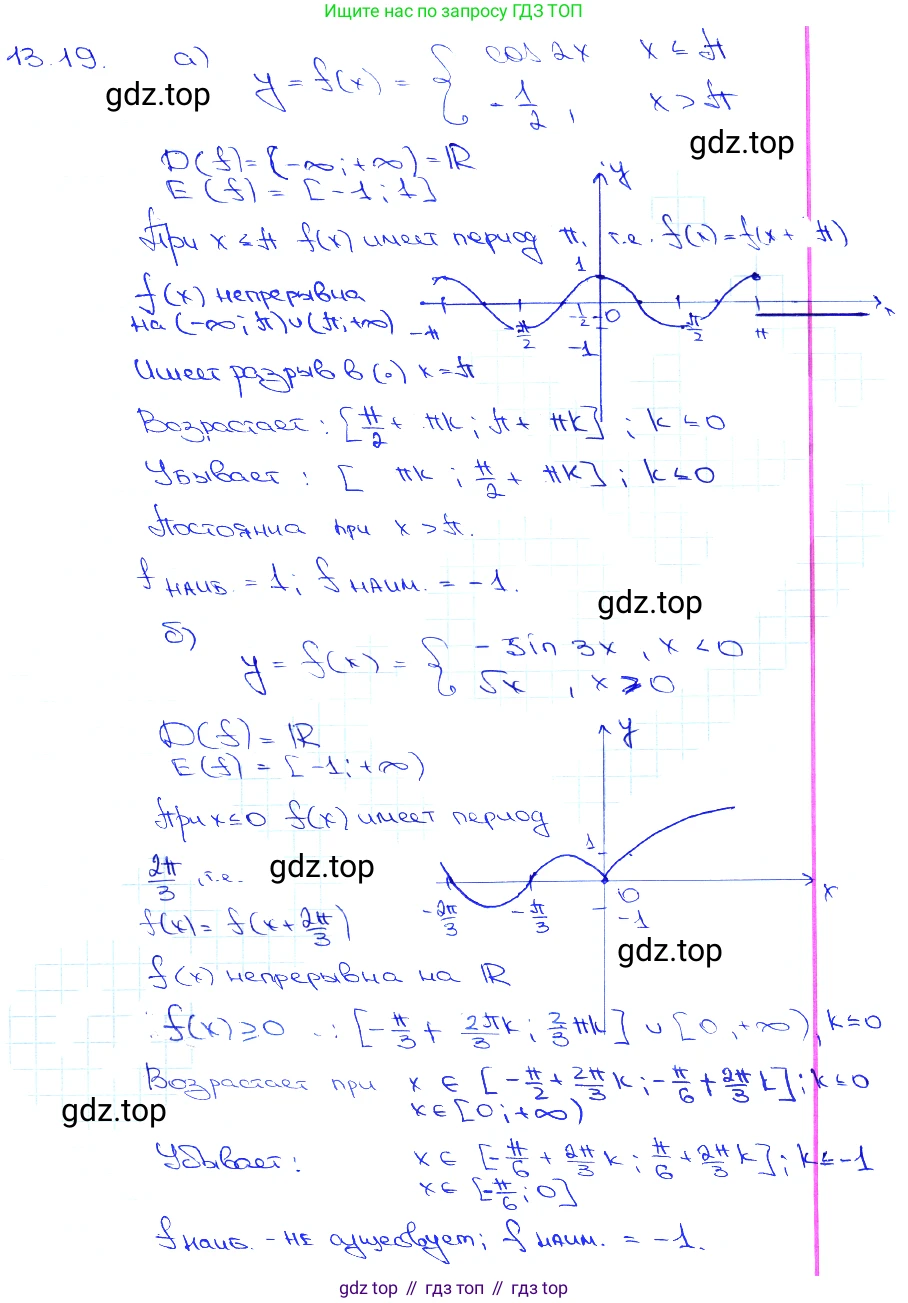 Ищите нас по запросу ГДЗ ТОП
13.19. а) y = f(x) = { cos 2x x ≤ π
- 1/2 , x > π
gdz.top
gdz.top
D(f) = (-∞; +∞) = ℝ
E(f) = [-1; 1]
При x ≤ π f(x) имеет период π, т.е. f(x) = f(x + π)
f(x) непрерывна
на (-∞; π) ∪ (π; +∞)
y
1
-π
-π/2
-1/2
0
-1
π/2
π
x
Имеет разрыв в (·) x = π
Возрастает: [π/2 + πk; π + πk] ; k ≤ 0
Убывает : [ πk ; π/2 + πk] ; k ≤ 0
Постоянна при x > π.
f наиб. = 1; f наим. = -1.
gdz.top
б)
y = f(x) = { - sin 3x , x < 0
√x , x ≥ 0
D(f) = ℝ
E(f) = [-1; +∞)
При x ≤ 0 f(x) имеет период
2π/3 , т.е.
gdz.top
f(x) = f(x + 2π/3)
y
1
-2π/3
-π/3
0
-1
x
gdz.top
f(x) непрерывна на ℝ
f(x) ≥ 0 : [-π/3 + 2πk/3 ; 2/3 πk] ∪ [0, +∞), k ≤ 0
Возрастает при x ∈ [-π/2 + 2π/3 k ; -π/6 + 2π/3 k]; k ≤ 0
x ∈ [0; +∞)
gdz.top
Убывает: x ∈ [-π/6 + 2π/3 k ; π/6 + 2π/3 k] ; k ≤ -1
x ∈ [-π/6 ; 0]
f наиб. - не существует; f наим. = -1.
gdz top // гдз топ // gdz top